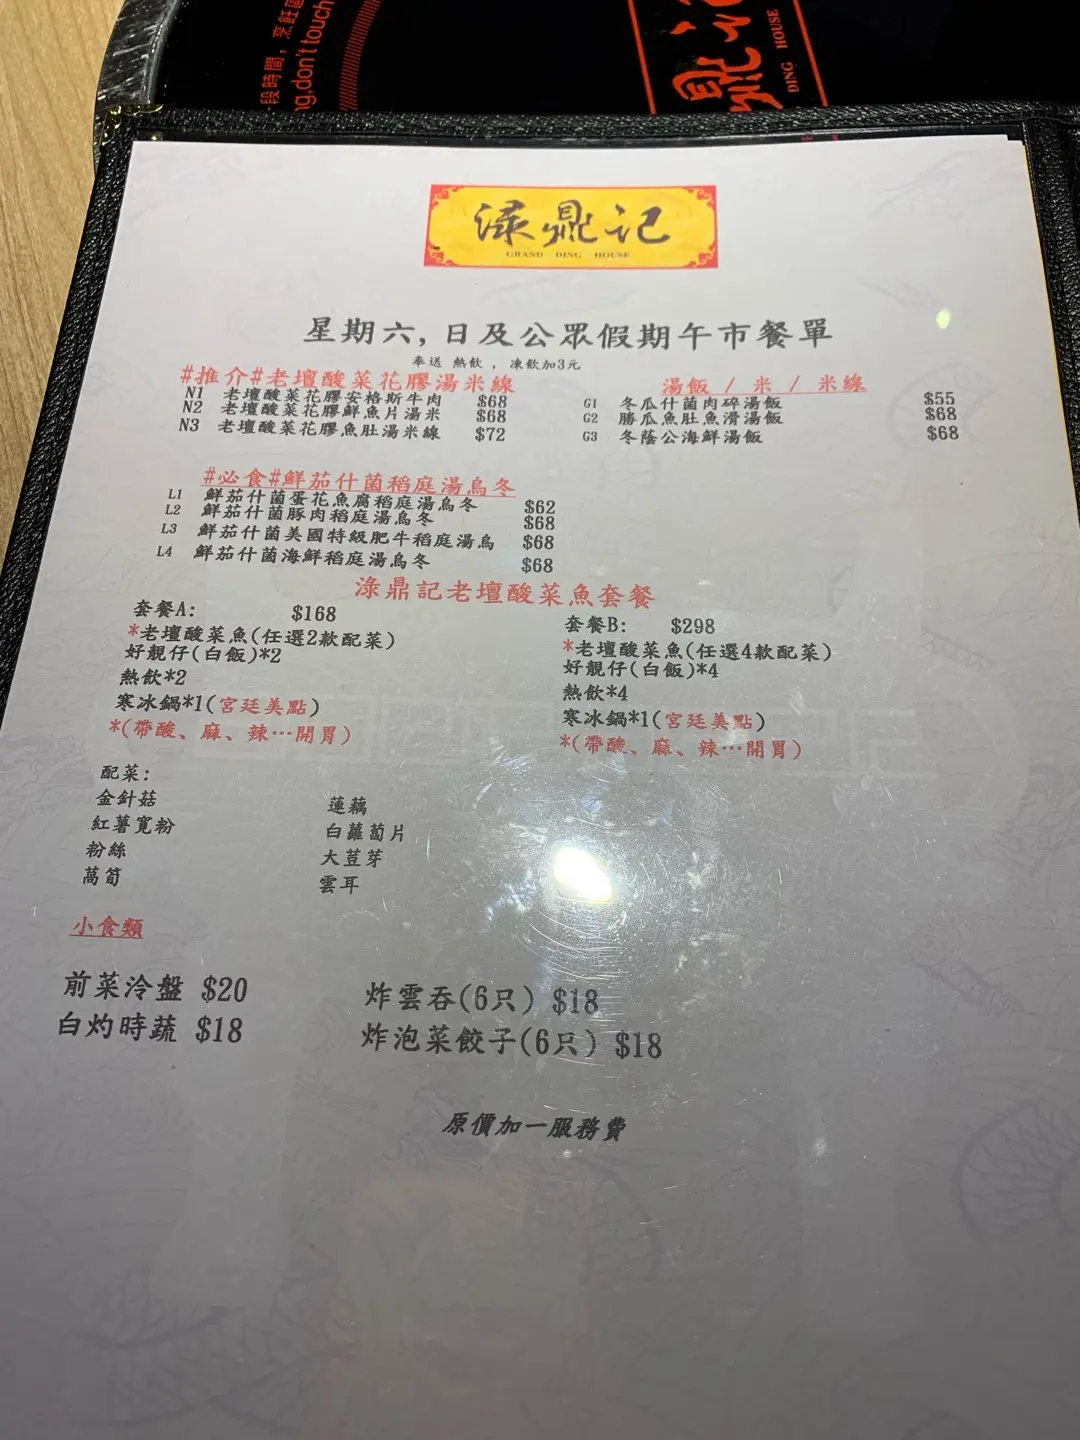 段時間，烹飪區
ng,don't touch
鼎記
DING HOUSE
淥鼎記
GRAND DING HOUSE
星期六,日及公眾假期午市餐單
奉送 熱飲 ，凍飲加3元
#推介#老壇酸菜花膠湯米線
N1 老壇酸菜花膠安格斯牛肉 $68
N2 老壇酸菜花膠鮮魚片湯米 $68
N3 老壇酸菜花膠魚肚湯米線 $72
湯飯 / 米 / 米線
G1 冬瓜什菌肉碎湯飯 $55
G2 勝瓜魚肚魚滑湯飯 $68
G3 冬蔭公海鮮湯飯 $68
#必食#鮮茄什菌稻庭湯烏冬
L1 鮮茄什菌蛋花魚腐稻庭湯烏冬 $62
L2 鮮茄什菌豚肉稻庭湯烏冬 $68
L3 鮮茄什菌美國特級肥牛稻庭湯烏 $68
L4 鮮茄什菌海鮮稻庭湯烏冬 $68
淥鼎記老壇酸菜魚套餐
套餐A: $168
*老壇酸菜魚(任選2款配菜)
好靚仔(白飯)*2
熱飲*2
寒冰鍋*1(宮廷美點)
*(帶酸、麻、辣…開胃)
套餐B: $298
*老壇酸菜魚(任選4款配菜)
好靚仔(白飯)*4
熱飲*4
寒冰鍋*1(宮廷美點)
*(帶酸、麻、辣…開胃)
配菜:
金針菇
紅薯寬粉
粉絲
萵筍
蓮藕
白蘿蔔片
大荳芽
雲耳
小食類
前菜冷盤 $20
白灼時蔬 $18
炸雲吞(6只) $18
炸泡菜餃子(6只) $18
原價加一服務費